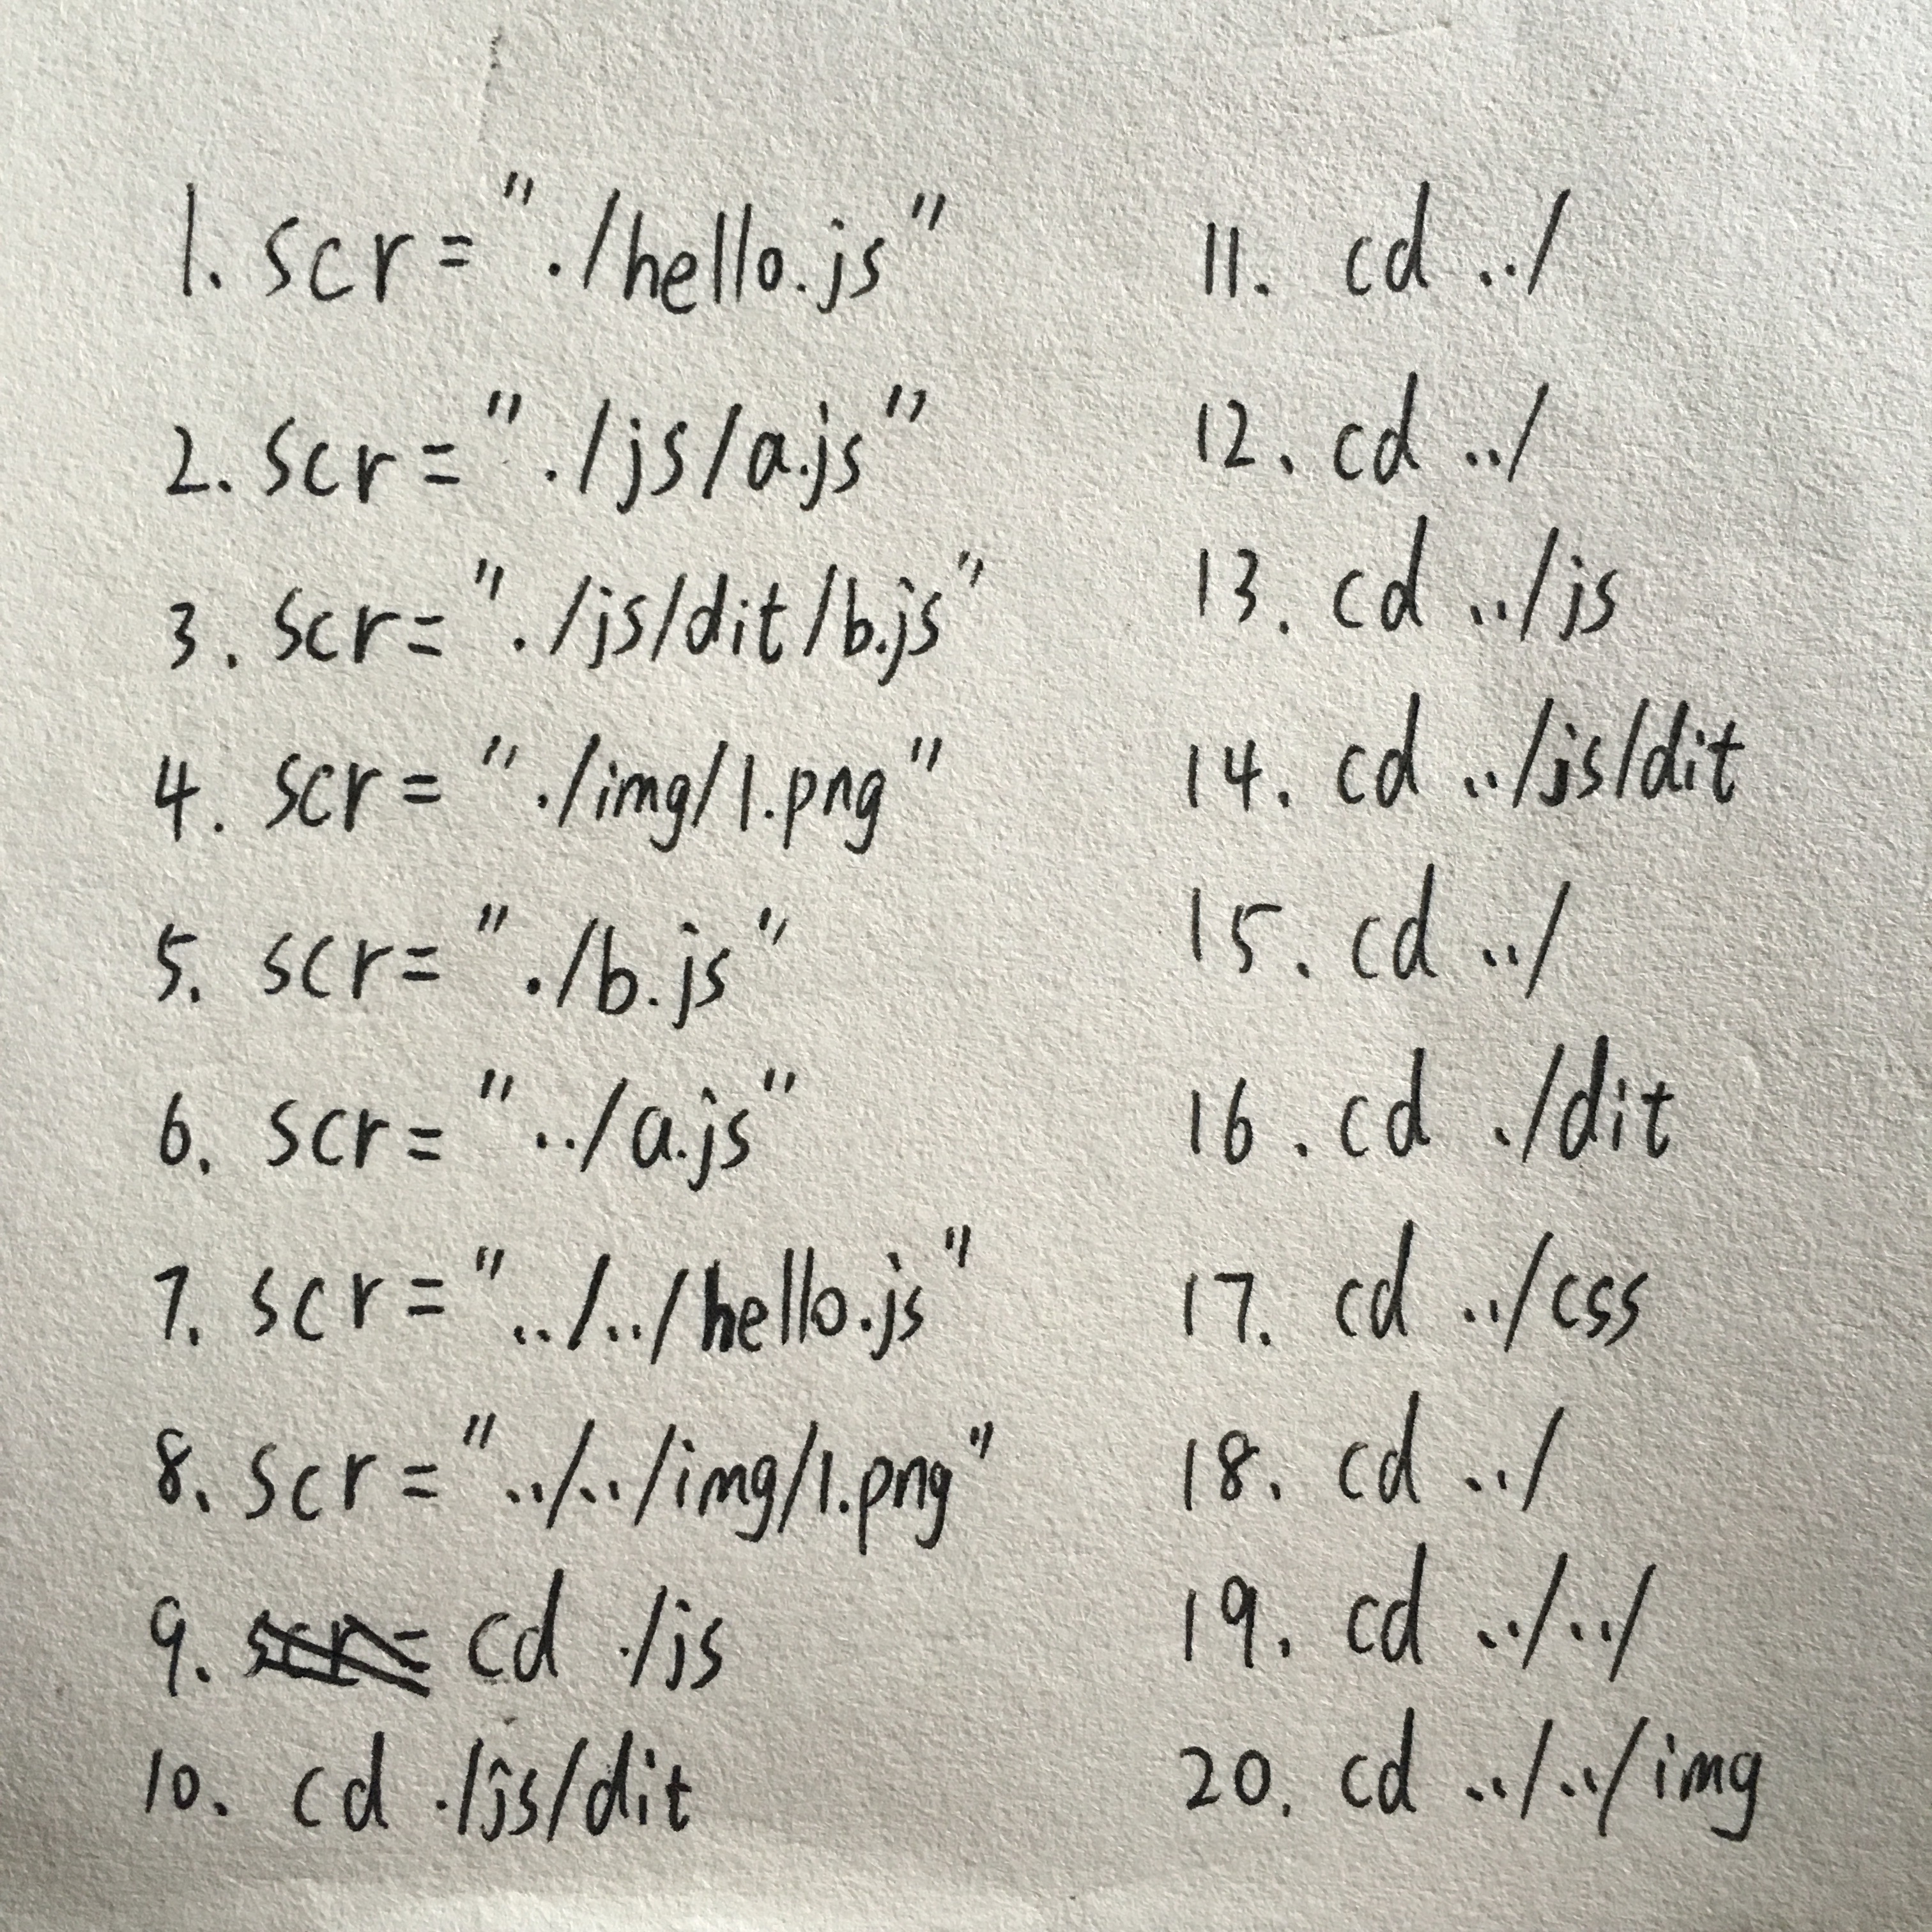 1. scr="./hello.js"
2. scr="./js/a.js"
3. scr="./js/dit/b.js"
4. scr="./img/1.png"
5. scr="./b.js"
6. scr="../a.js"
7. scr="../../hello.js"
8. scr="../../img/1.png"
9. cd ./js
10. cd ./js/dit
11. cd ../
12. cd ../
13. cd ../js
14. cd ../js/dit
15. cd ../
16. cd ./dit
17. cd ../css
18. cd ../
19. cd ../../
20. cd ../../img